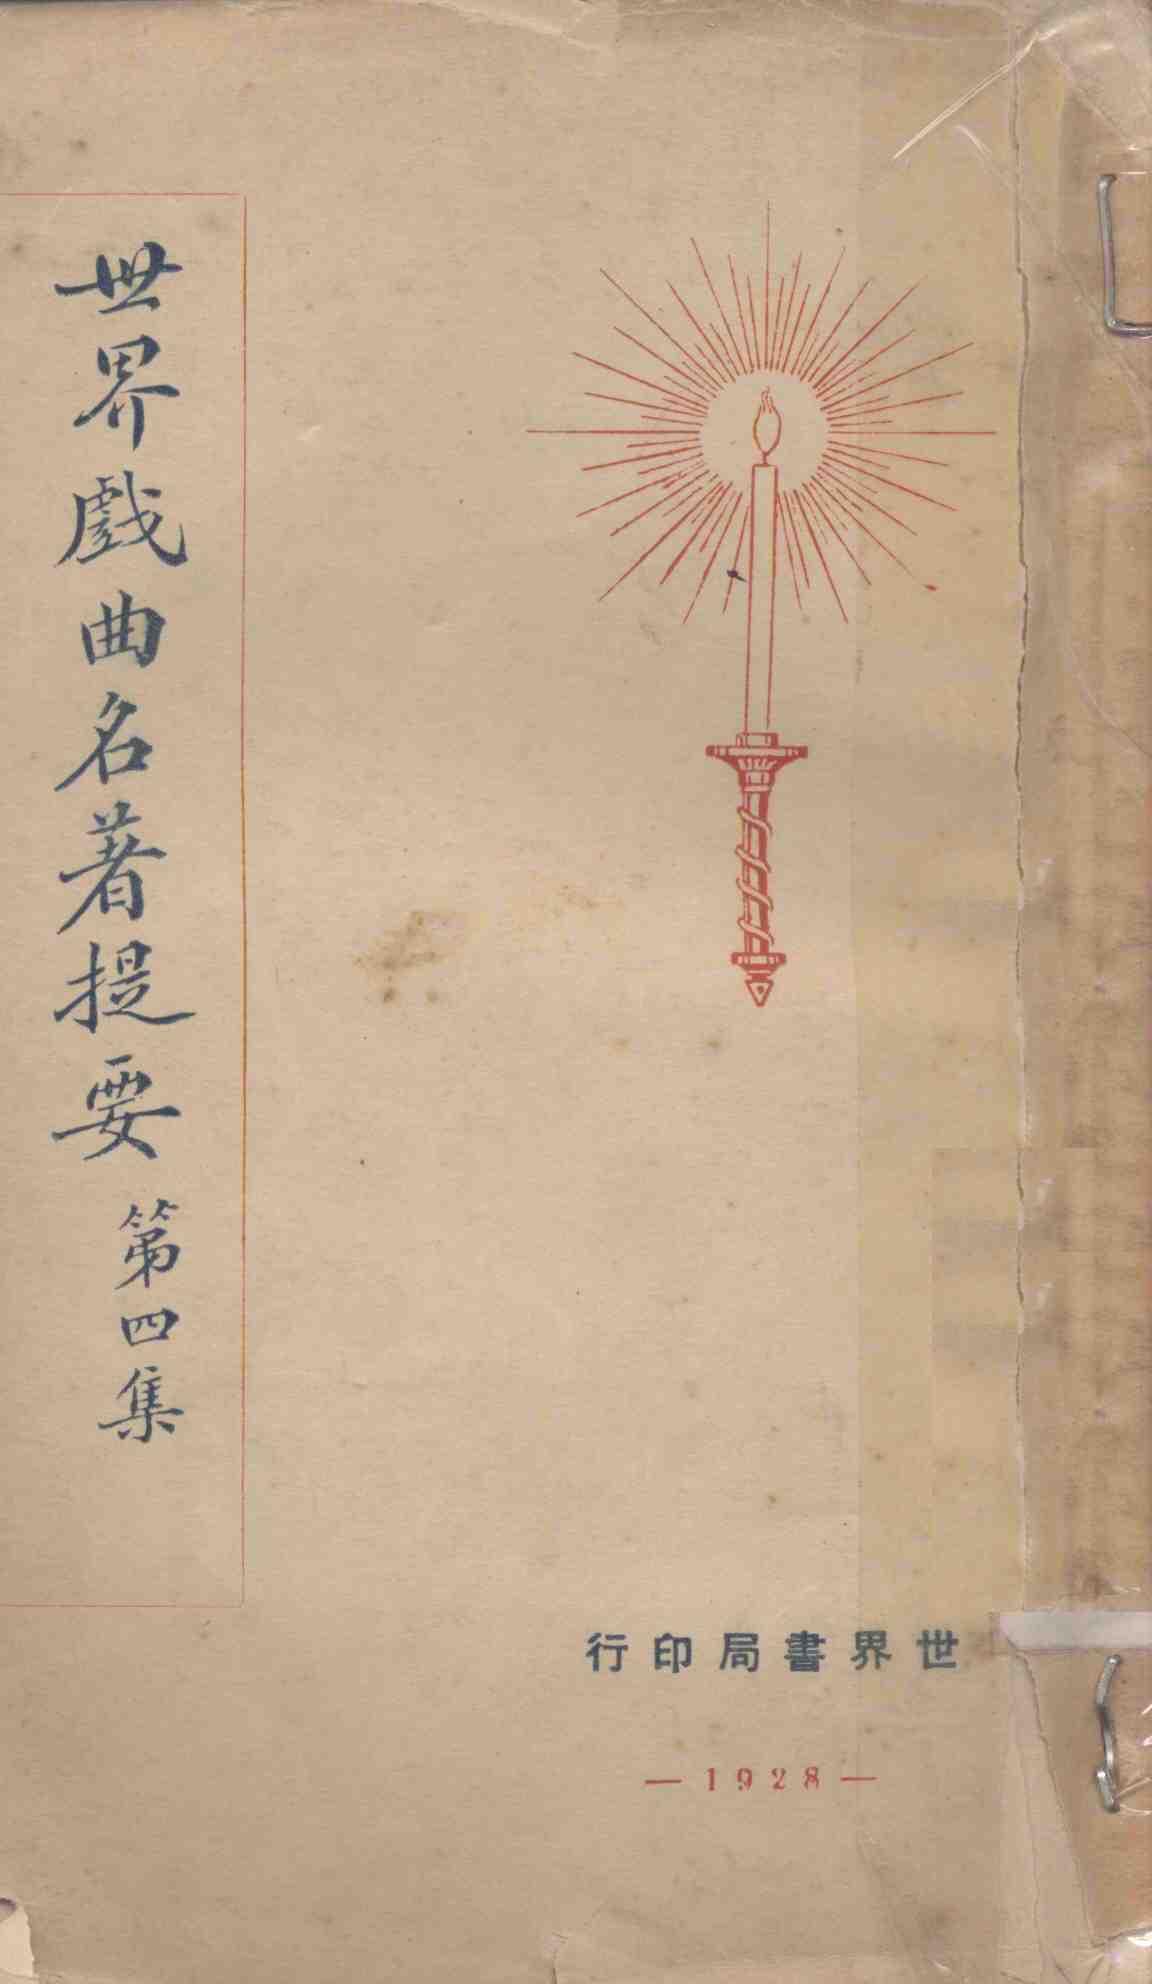 世界戲曲名著提要 第四集
世界書局印行
—1928—